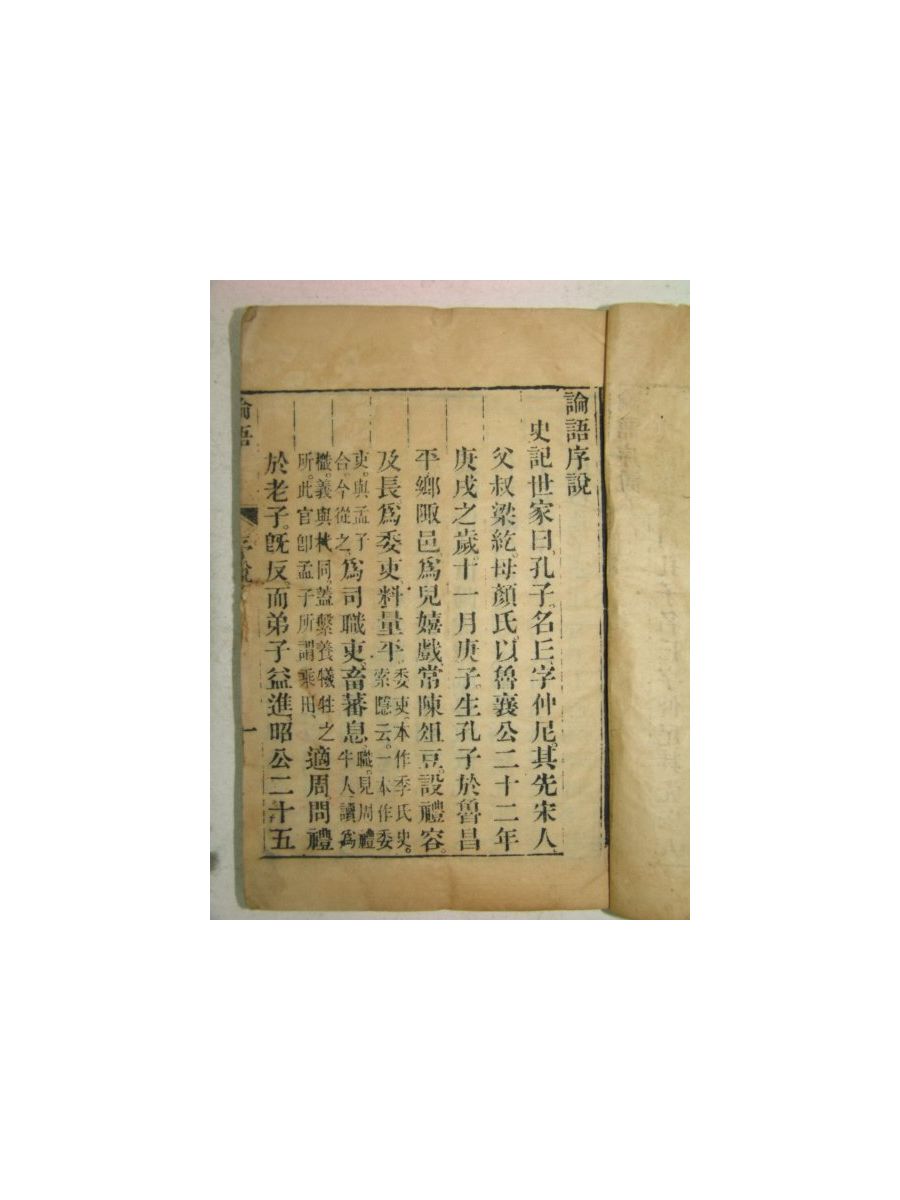 論語序說
史記世家曰、孔子。名丘字仲尼。其先宋人、
父叔梁紇。母顏氏。以魯襄公二十二年
庚戌之歲。十一月庚子。生孔子於魯昌
平鄉陬邑。爲兒嬉戲。常陳俎豆。設禮容。
及長。爲委吏。料量平。委吏。本作季氏史。索隱云。一本作委
吏。與孟子合。今從之。爲司職吏。畜蕃息、職。見周禮牛人。讀爲
樴。義與杙同。蓋繫養犧牲之所。此官卽孟子所謂乘田、適周。問禮
於老子。旣反。而弟子益進。昭公二十五
論語
序說
一